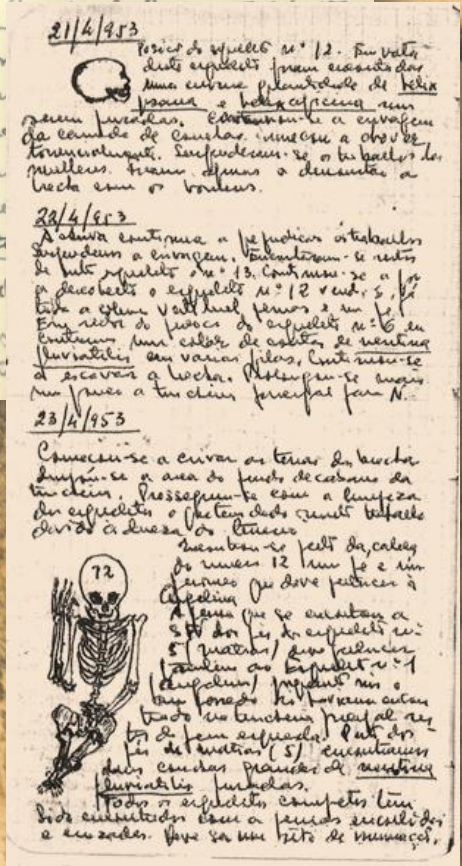 21/4/953
esqueleto nº 12. Em volta
deste esqueleto foram encontradas
uma enorme quantidade de helix
pisana e helix
serem furadas. Continuou-se a crivagem
da camada de conchas. Começou a chover
torrencialmente. Suspenderam-se os trabalhos das
mulheres. Ficaram apenas a desmontar a
brecha com os homens.
22/4/953
A chuva continua a prejudicar os trabalhos
Suspendemos a crivagem. Encontraram-se restos
de outro esqueleto o nº 13. Continuou-se a pôr
a descoberto o esqueleto nº 12 vendo-se já
toda a coluna vertebral pernas e um pé.
Em redor do pescoço do esqueleto nº 6 en
contramos um colar de contas de neritina
fluviatilis em varias filas. Continuou-se
a escavar a brecha. Prolongou-se mais
um pouco a trincheira principal para N.
23/4/953
Começou-se a crivar as terras da brecha
Limpou-se a area do fundo de cabana da
trincheira. Prosseguiu-se com a limpeza
dos esqueletos o que tem dado muito trabalho
devido à dureza do terreno
Encontrou-se perto da cabeça
do numero 12 um pé e um
que deve pertencer à
Angelina
A perna que se encontrou a
dos pés do esqueleto nº
5 (matias) deve pertencer
tambem ao Esqueleto nº 1
(angelina) porquanto nos o
haviamos encon
trado na trincheira principal
tos da perna esquerda. Perto dos
pés do matias (5) encontramos
duas conchas grandes de neritina
fluviatilis furadas.
Todos os esqueletos completos têm
sido encontrados com as pernas encolhidas
e cruzadas. Deve ser um rito de inumação.
12